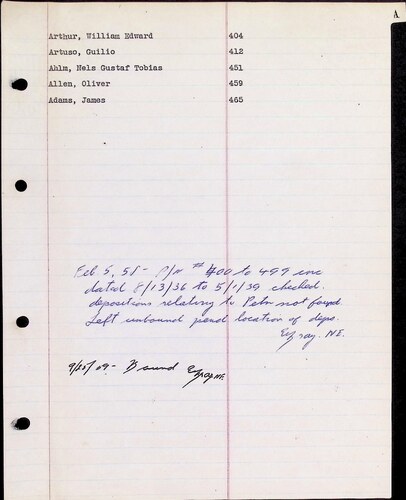 A
Arthur, William Edward 404
Artuso, Guilio 412
Ahlm, Nels Gustaf Tobias 451
Allen, Oliver 459
Adams, James 465
Feb 5, 58 - P/N # 400 to 499 inc
dated 8/13/36 to 5/1/39 checked.
depositions relating to Petn not found
Left unbound pend location of deps.
NE.
- Bound NE